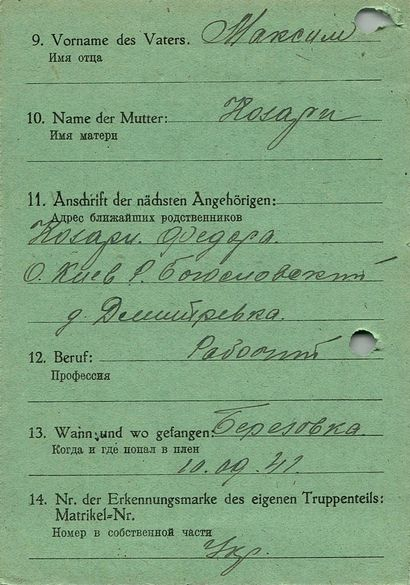 9. Vorname des Vaters. Максим
Имя отца
10. Name der Mutter: Козари
Имя матери
11. Anschrift der nächsten Angehörigen:
Адрес ближайших родственников
Козари. Федора.
О. Киев Р. Богословский
д. Демитревка.
12. Beruf: Рабочий
Профессия
13. Wann und wo gefangen: Березовка
Когда и где попал в плен
10.09.41.
14. Nr. der Erkennungsmarke des eigenen Truppenteils:
Matrikel-Nr.
Номер в собственной части
Укр.